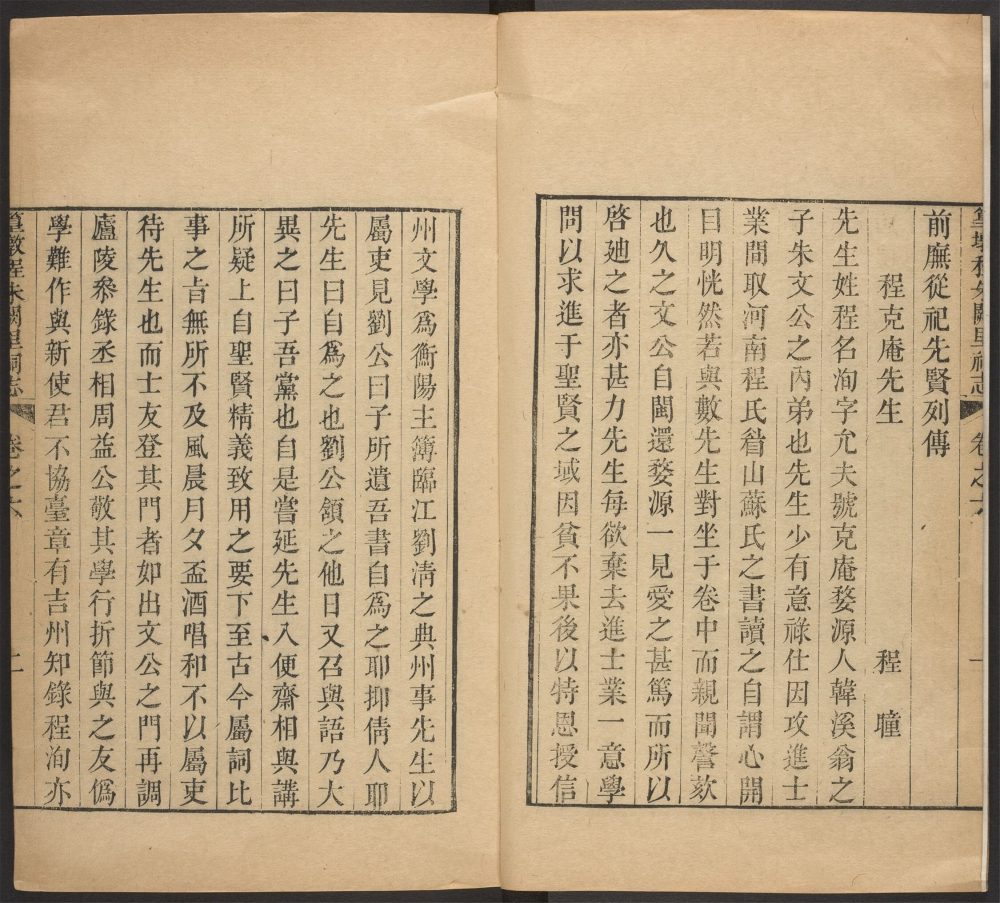 程朱闕里祠志
卷之六
一
前廡從祀先賢列傳
程克庵先生 程曈
先生姓程名洵字允夫號克庵婺源人韓溪翁之
子朱文公之内弟也先生少有意祿仕因攻進士
業間取河南程氏眉山蘇氏之書讀之自謂心開
目明恍然若與數先生對坐于卷中而親聞謦欬
也久之文公自閩還婺源一見愛之甚篤而所以
啓廸之者亦甚力先生每欲棄去進士業一意學
問以求進于聖賢之域因貧不果後以特恩授信
州文學爲衡陽主簿臨江劉清之典州事先生以
屬吏見劉公曰子所遺吾書自爲之耶抑倩人耶
先生曰自爲之也劉公頷之他日又召與語乃大
異之曰子吾黨也自是嘗延先生入便齋相與講
所疑上自聖賢精義致用之要下至古今屬詞比
事之旨無所不及風晨月夕盃酒唱和不以屬吏
待先生也而士友登其門者如出文公之門再調
廬陵叅錄丞相周益公敬其學行折節與之友僞
學難作與新使君不協臺章有吉州知錄程洵亦
篁墩程朱闕里祠志
卷之六
二